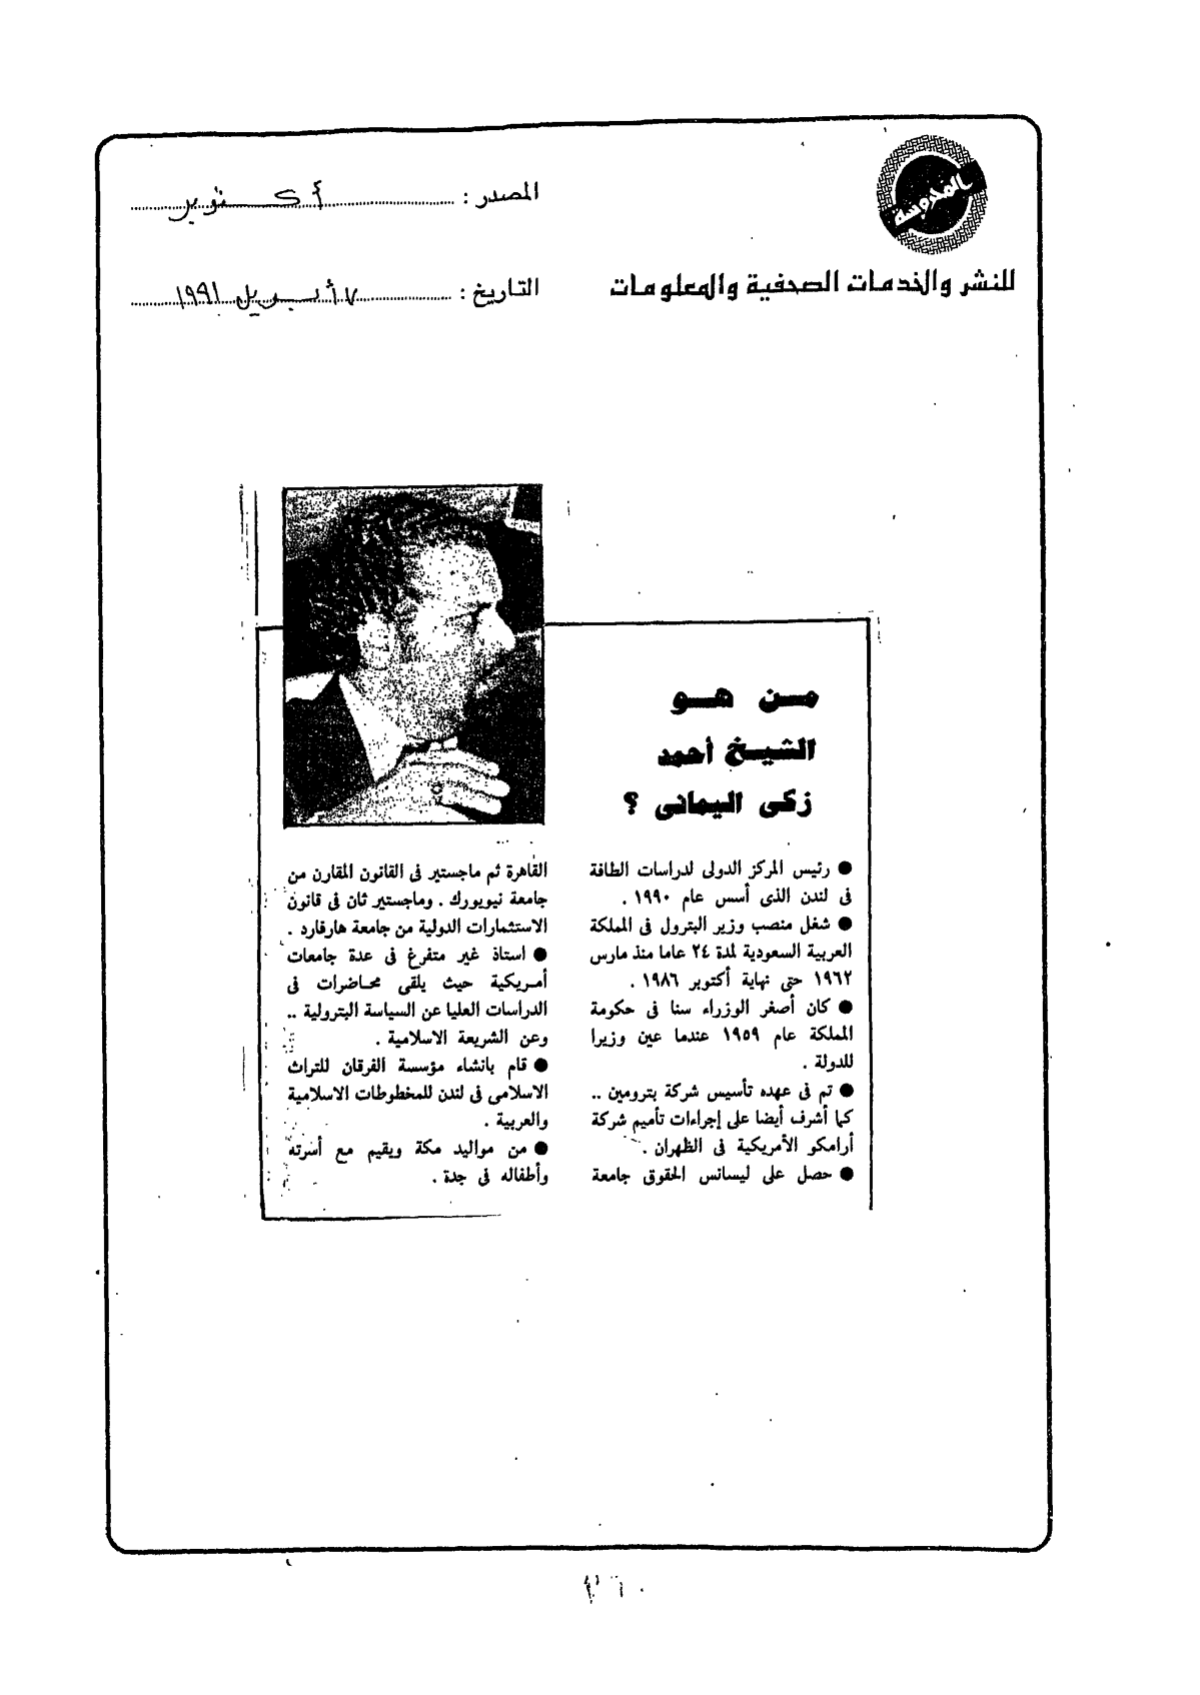 المحروسة
للنشر والخدمات الصحفية والمعلومات
المصدر : أكتوبر
التاريخ : ٧ أبريل ١٩٩١
مـن هـو
الشيـخ أحمد
زكى اليمانى ؟
● رئيس المركز الدولى لدراسات الطاقة
فى لندن الذى أسس عام ١٩٩٠ .
● شغل منصب وزير البترول فى المملكة
العربية السعودية لمدة ٢٤ عاما منذ مارس
١٩٦٢ حتى نهاية أكتوبر ١٩٨٦ .
● كان أصغر الوزراء سنا فى حكومة
المملكة عام ١٩٥٩ عندما عين وزيرا
للدولة .
● تم فى عهده تأسيس شركة بترومين ..
كما أشرف أيضا على إجراءات تأميم شركة
أرامكو الأمريكية فى الظهران .
● حصل على ليسانس الحقوق جامعة
القاهرة ثم ماجستير فى القانون المقارن من
جامعة نيويورك . وماجستير ثان فى قانون
الاستثمارات الدولية من جامعة هارفارد .
● استاذ غير متفرغ فى عدة جامعات
أمـريكية حيث يلقى محـاضرات فى
الدراسات العليا عن السياسة البترولية ..
وعن الشريعة الاسلامية .
● قام بانشاء مؤسسة الفرقان للتراث
الاسلامى فى لندن للمخطوطات الاسلامية
والعربية .
● من مواليد مكة ويقيم مع أسرته
وأطفاله فى جدة .